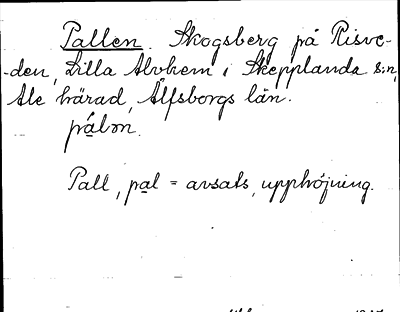 Pallen. Skogsberg på Risve-
-den, Lilla Alvhem i Skepplanda s:n,
Ale härad, Älfsborgs län.
pálən.
Pall, pal = avsats, upphöjning.